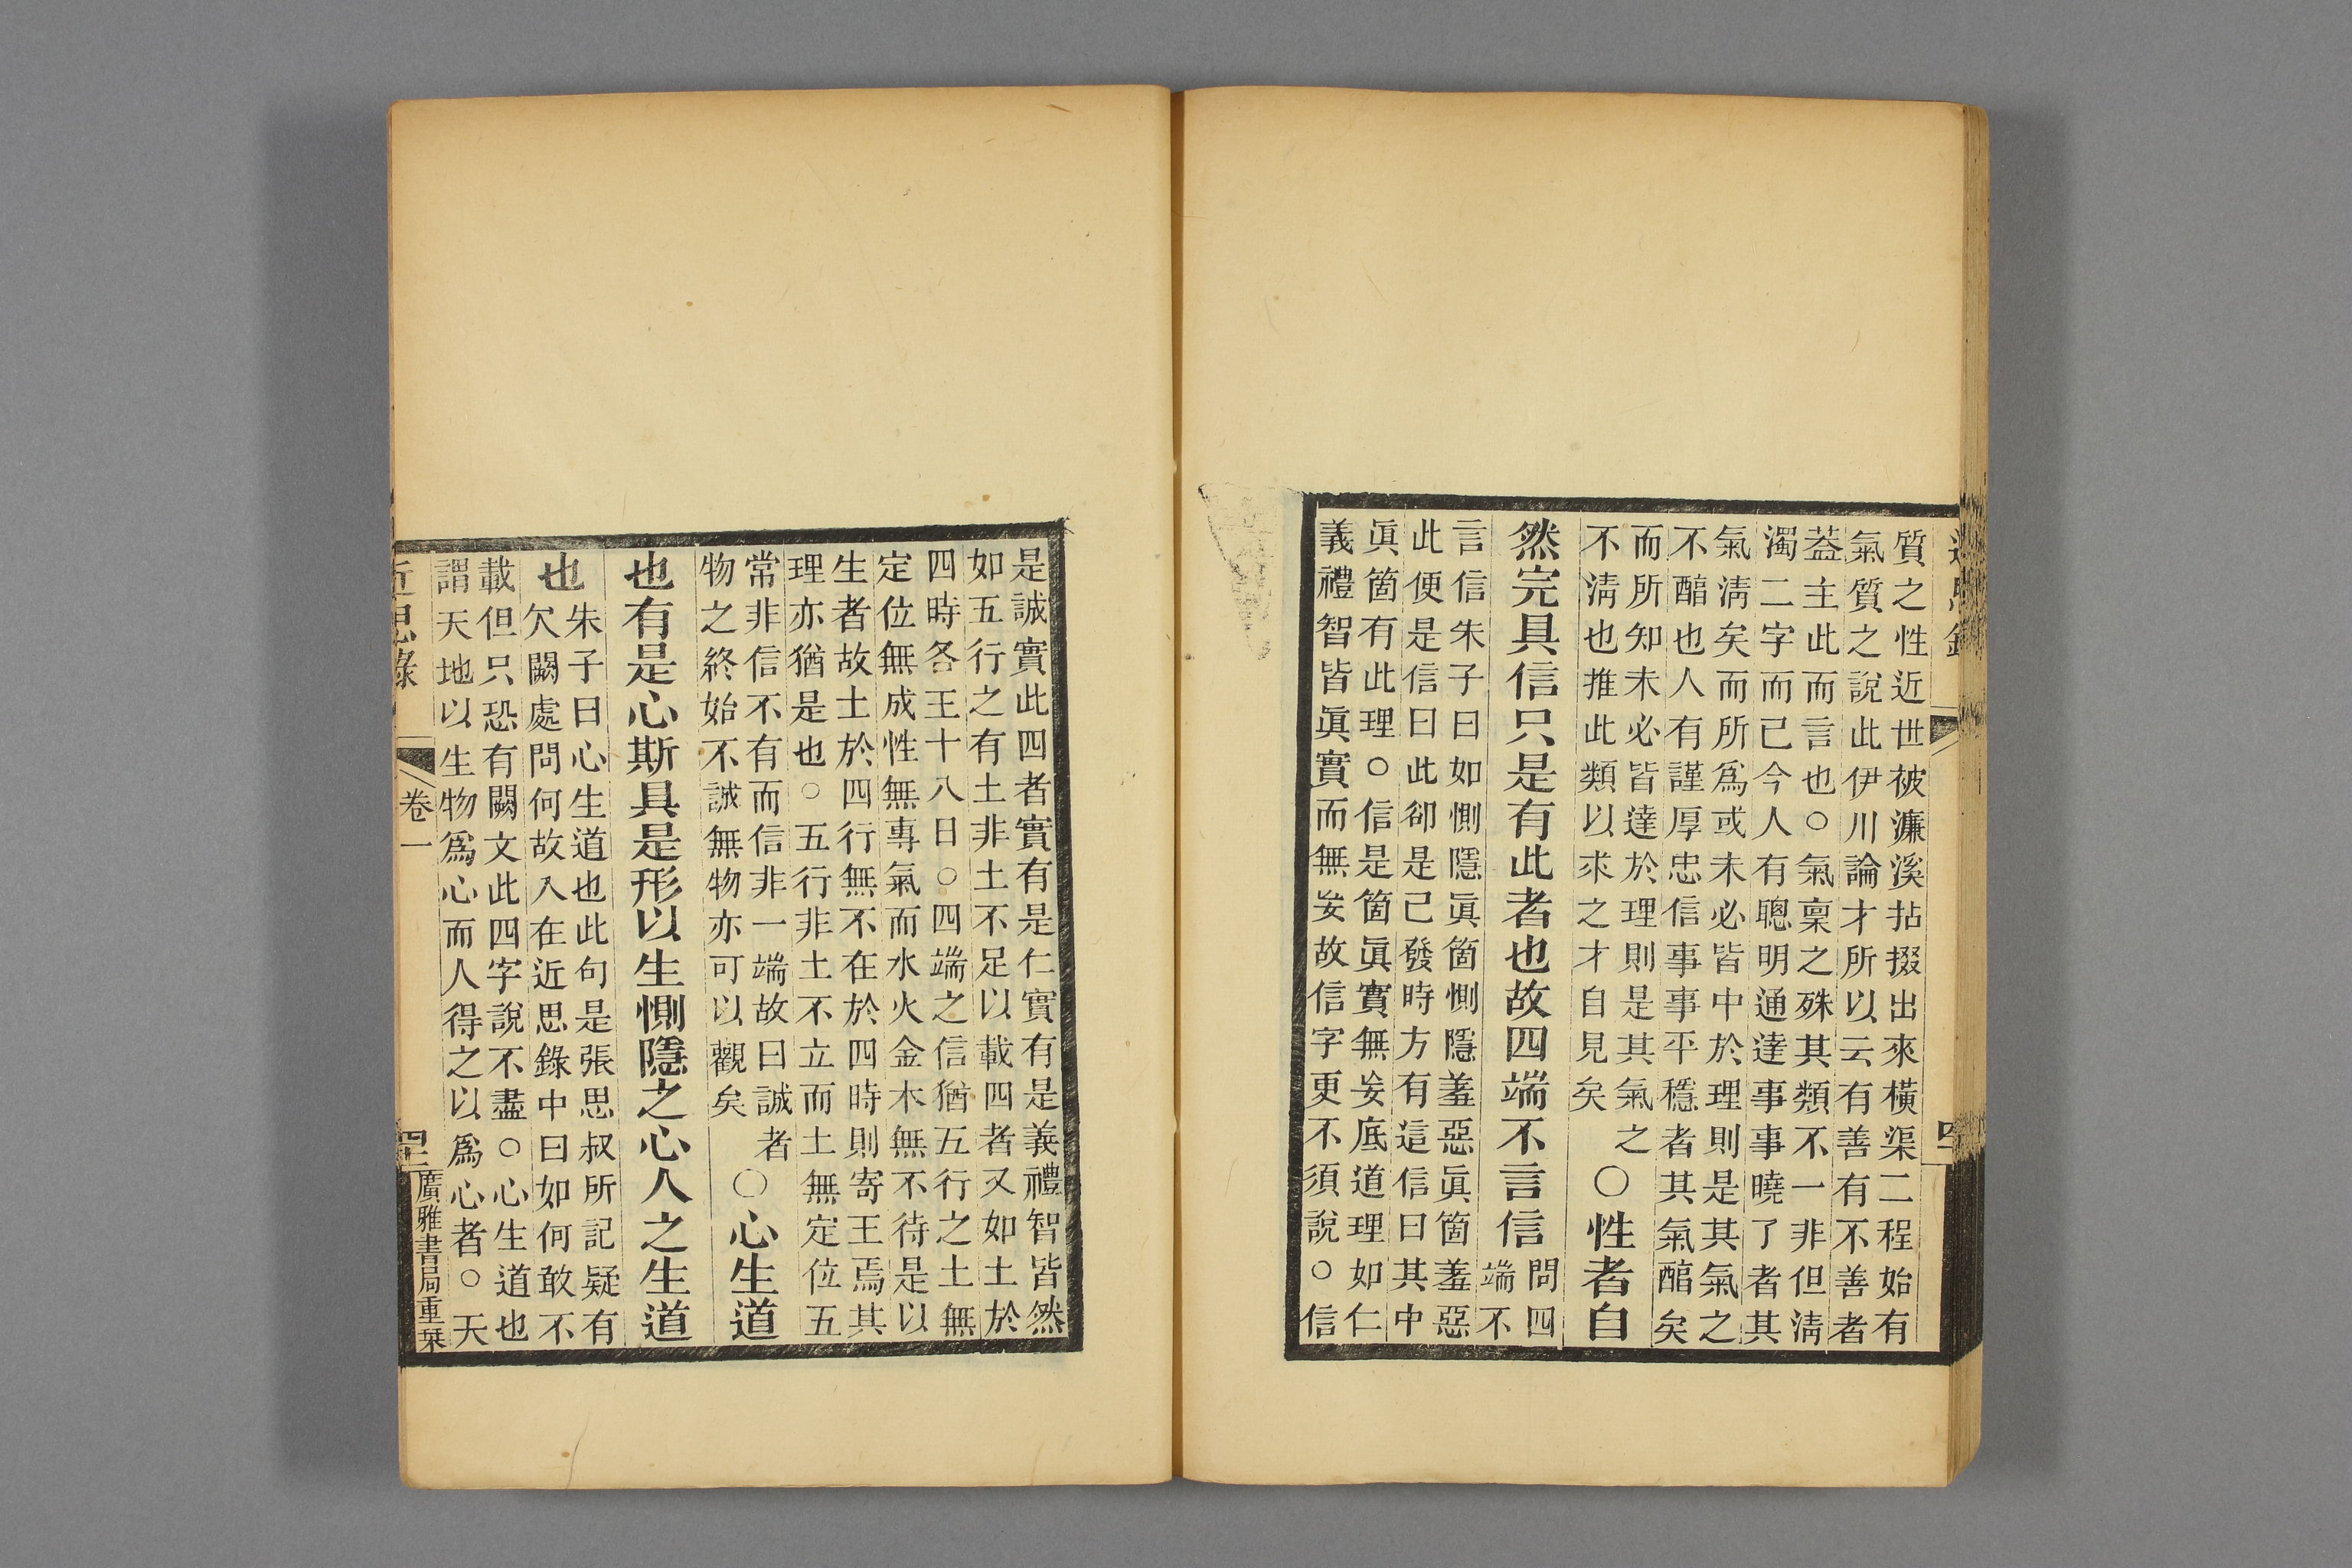 質之性近世被濂溪拈掇出來橫渠二程始有
氣質之說此伊川論才所以云有善有不善者
葢主此而言也○氣稟之殊其類不一非但淸
濁二字而已今人有聰明通達事事曉了者其
氣淸矣而所爲或未必皆中於理則是其氣之
不醕也人有謹厚忠信事事平穩者其氣醕矣
而所知未必皆達於理則是其氣之
不淸也推此類以求之才自見矣
○性者自
然完具信只是有此者也故四端不言信
問四
端不
言信朱子曰如惻隱眞箇惻隱羞惡眞箇羞惡
此便是信曰此卻是已發時方有這信曰其中
眞箇有此理○信是箇眞實無妄底道理如仁
義禮智皆眞實而無妄故信字更不須說○信
是誠實此四者實有是仁實有是義禮智皆然
如五行之有土非土不足以載四者又如土於
四時各王十八日○四端之信猶五行之土無
定位無成性無專氣而水火金木無不待是以
生者故土於四行無不在於四時則寄王焉其
理亦猶是也○五行非土不立而土無定位五
常非信不有而信非一端故曰誠者
物之終始不誠無物亦可以觀矣
○心生道
也有是心斯具是形以生惻隱之心人之生道
也
朱子曰心生道也此句是張思叔所記疑有
欠闕處問何故入在近思錄中曰如何敢不
載但只恐有闕文此四字說不盡○心生道也
謂天地以生物爲心而人得之以爲心者○天
近思錄
卷一
廣雅書局重栞